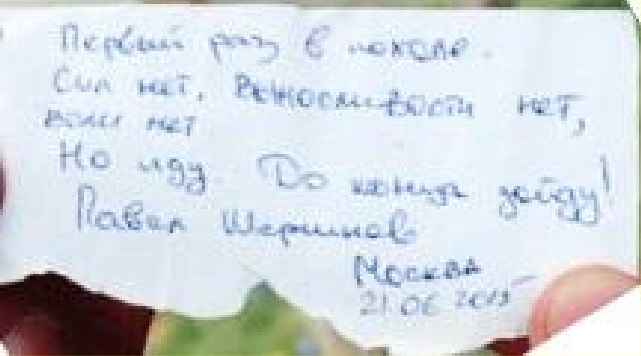 Первый раз в походе.
Сил нет, выносливости нет,
воли нет
Но иду. До конца дойду!
Павел
Москва
21.06 2015